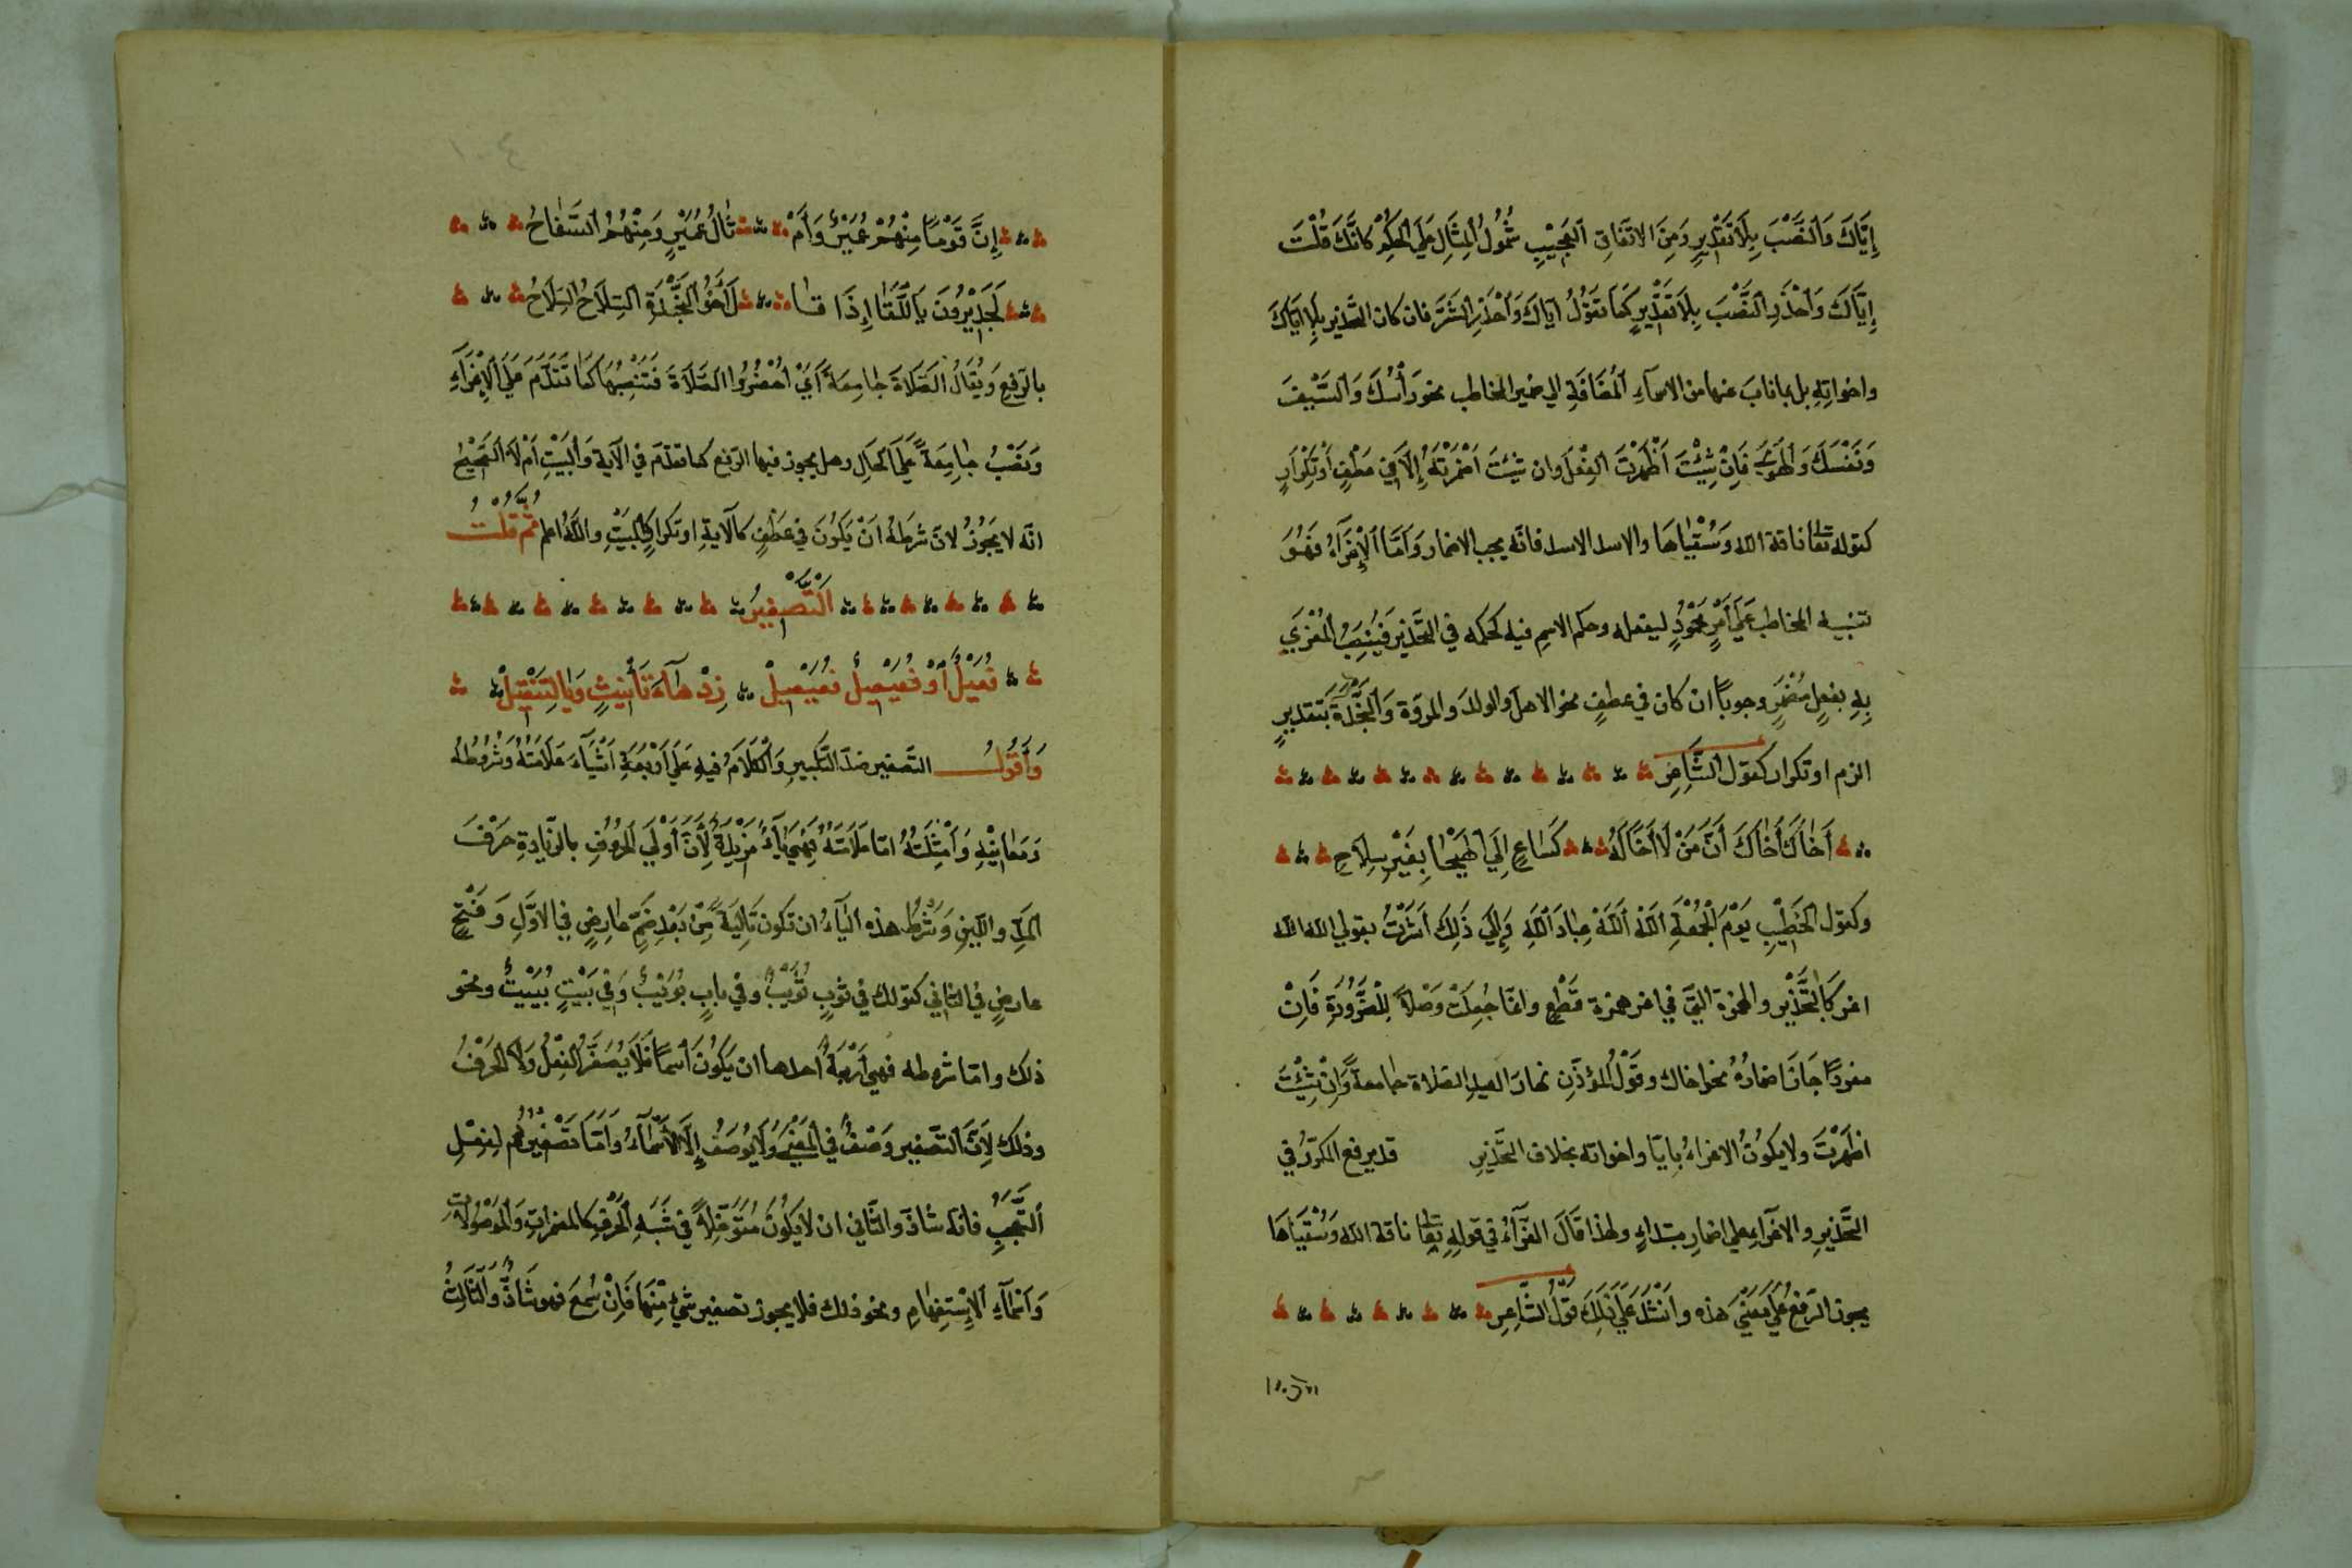 إِيَّاكَ وَالنَّصْبَ بِلَا تَقْدِيرٍ وَمِنَ الاتّفَاقِ العَجِيْبِ شُمُولُ المِثَالِ عَلَى الحُكْمِ كَانَّكَ قُلْتَ
إِيَّاكَ وَاحْذَرِ النَّصْبَ بِلَا تَقْدِيرٍ كَمَا تَقُوْلُ اِيّاكَ وَاحْذَرِ الشَّرَّ فان كان التَّحذير بلا اِيّاكَ
واخواتِهِ بل بما نابَ عنها من الاسمآءِ المُضَافَةِ الي ضمير المخاطب نحو رَأْسَكَ وَالسَّيْفَ
وَنَفْسَكَ وَالهَوَىٰ فَاِنْ شِئْتَ أَظْهَرْتَ الفِعْلَ وان شِئتَ اَضْمَرْتَهُ إِلَّا في عَطْفٍ اَوْ تِكْرَارٍ
كقوله تعا ناقة الله وَسُقْيَاهَا والاسد الاسد فانّه يجب الاضمار وَاَمَّا الإِغْرَآءُ فَهُوَ
تنبيه المخاطب عَلَى أَمْرٍ مَحْمُوْدٍ ليفعله وحكم الاسمِ فيه كحكمه في التّحذير فَيُنْصَبُ المُغْرَي
بِهِ بفعلٍ مُضْمَرٍ وجوباً ان كان في عطفٍ نحو الاهلَ والولدَ والمروّة وَالنَّجْدَةَ بتقديرٍ
الزم او تكرار كقول الشَّاعِرِ
أَخَاكَ أَخَاكَ أَنَّ مَنْ لَا أَخَا لَهُ كَسَاعٍ اِلَي الهَيْجَا بِغَيْرِ سِلَاحِ
وكقول الخَطِيْبِ يَوْمَ الجُمْعَةِ اللهَ اللهَ عِبَادَ اللهِ وَإِلَي ذَلِكَ اَشَرْتُ بقولي الله الله
اغر كَالتَّحْذِيْرِ والهمزة الّتي في اغر همزة قَطْعٍ وانّما جُعِلَتْ وَصْلاً لِلْضَّرُوْرَةِ فَاِنْ
مفردًا جَازَ اضمارُهُ نحو اخاك وقَوْلُ المُؤذّنِ نهارَ العيدِ الصّلاة جامعةً وَاِنْ شِئْتَ
اظهَرْتَ ولا يكوُنُ الاغراءُ بِايّا واخواته بخلاف التّحذيرِ قد يرفع المكرّرُ في
التّحذيرِ والاغرآءِ علي اضمارِ مبتداءٍ ولهذا قَالَ الفَرَّآءُ في قولِهِ تعا ناقة الله وَسُقْيَاهَا
يجوز الرّفعُ عَلَي مَعْنَي هذه وانْشَدَ عَلَي ذَلِكَ قَوْلُ الشَّاعِرِ
إِنَّ قَوْمًا مِنْهُمْ عُمَيْرٌ وَأَمْ ثَالُ عُمَيْرٍ وَمِنْهُمُ السَّفَاحُ
لَجَدِيْرُوْنَ بِاللِّقَا إِذَا قا لَ أَخُوْ النَّجْدَةِ السِّلَاحُ السِّلَاحُ
بالرّفعِ وَيُقَالُ الصَّلَاةَ جَامِعَةً اَيْ اُحْضُرُوا الصَّلَاةَ فَتَنْصِبُهَا كَمَا تَقَدَّمَ عَلَي الاِغْرَآءِ
وَنَصْبُ جَامِعَةً عَلَي الحَالِ وهل يجوز فيها الرّفع كما تقدّمَ في الآيةِ وَالبَيْتِ اَمْ لَا الصَّحِيْحُ
انّه لا يَجُوْزُ لانّ شَرطَهُ اَنْ يَكُوْنَ في عَطْفٍ كالآيةِ او تكرار كالبَيْتِ واللّه اعلم ثُمَّ قُلْتُ
التَّصْغِيْرُ
فُعَيْلٌ أَوْ فُعَيْعِلٌ فُعَيْعِيْلْ زِدْ هَآءَ تَأْنِيثٍ وَبَالِتَنْقِيْلْ
وَأَقُوْلُ التّصغير ضدّ التّكبيرِ وَالْكَلَامُ فيهِ عَلَي اَرْبَعَةِ اَشْيَآءَ عَلَامَتُهُ وَشُرُوْطُهُ
وَمَعَانِيْهِ وَاَمْثِلَتُهُ امّا عَلَامَتُهُ فَهِيَ يَآءٌ مَزِيْدَةٌ لِأَنَّ اَوْلَي الحُرُوْفِ بالزّيادةِ حَرْفَ
المَدِّ واللّينِ وَشَرْطُ هذه اليَآءِ ان تكون ثَالِثَةً مِنْ بَعْدِ ضَمٍّ عارِضٍ في الاوّلِ وَفَتْحٍ
عارِضٍ في الثّاني كقولك في ثوبٍ ثُوَيْبٌ وفي بابٍ بُوَيْبٌ وَفِي بَيْتٍ بُيَيْتٌ ونحو
ذلك وامّا شروطه فهي اَرْبَعَةٌ احدها ان يَكُوْنَ اسْمًا فَلَا يُصَغَّرُ الفِعْلُ وَلَا الحَرْفُ
وذلك لِاَنَّ التّصغير وَصْفٌ في المَعْنَي وَلَا يُوْصَفُ إِلَّا الاَسْمَآءُ وَامَّا تَصْغِيْرُهُم لِفِعْلِ
التَّعَجُّبِ فانّه شاذّ والثّاني ان لا يَكُوْنَ مُتَوَغِّلاً في شَبَهِ الحَرْفِ كالمضمرات وَالمَوْصُوْلَاتِ
وَاَسْمَآءِ الاِسْتِفهَامِ ونحو ذلك فلا يجوز تصغير شَيْءٍ مِنْهَا فَاِنْ سُمِعَ فهو شَاذٌّ وَالثَّالِثُ